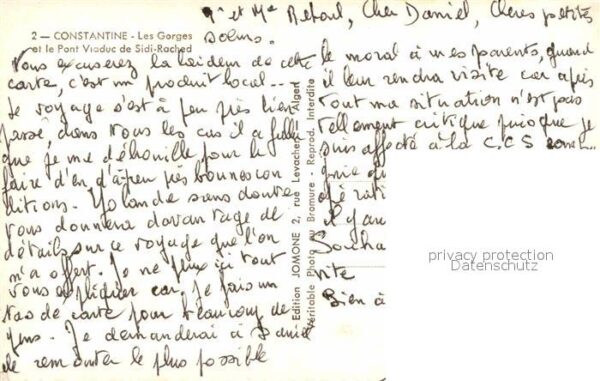 2 — CONSTANTINE - Les Gorges
et le Pont Viaduc de Sidi-Rached
et Me Cher Daniel, Chères petites
soeurs.
Vous excuserez la laideur de cette
carte, c'est un produit local..
Le voyage s'est à peu près bien
passé, dans tous les cas il a fallu
que je me débrouille pour le
faire d'en d'à peu près bonnes con
ditions. Yolande sans doute
vous donnera davantage de
détails sur ce voyage que l'on
m'a offert. Je ne peux ici tout
vous expliquer car je fais un
tas de carte pour beaucoup de
gens. Je demanderai à Daniel
de remonter le plus possible
le moral à mes parents, quand
il leur rendra visite car après
tout ma situation n'est pas
tellement critique puisque je
suis affecté à la C.C.S
gnie qu
opérati
il y au
Souha
vite
Bien à
Edition JOMONE 2, rue Levacher - Alger
Véritable Photo au Bromure - Reprod. Interdite
privacy protection
Datenschutz